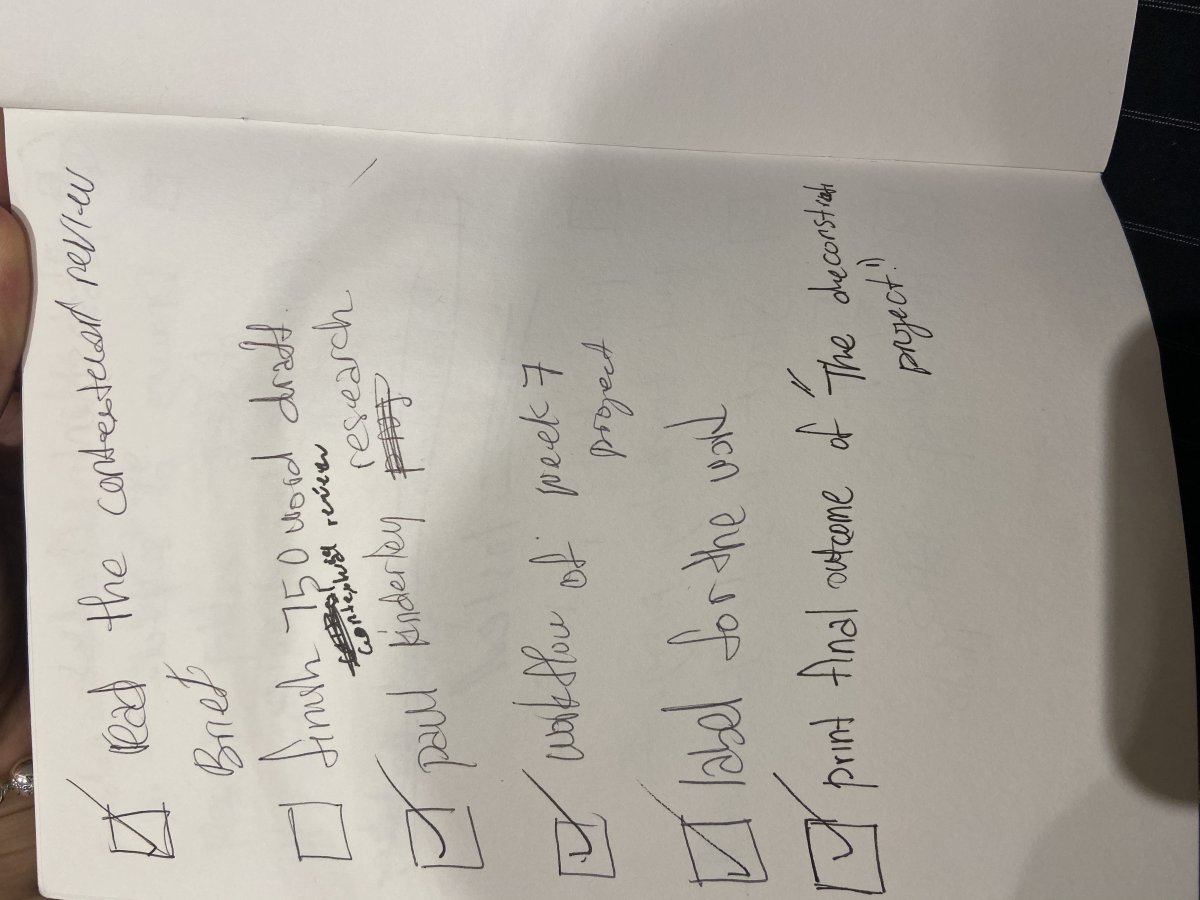 read the contextual review
Brief
finish 750 word draft.
contextual review
paull kinderley research
workflow of week 7
project
label for the work
print final outcome of "The
project"